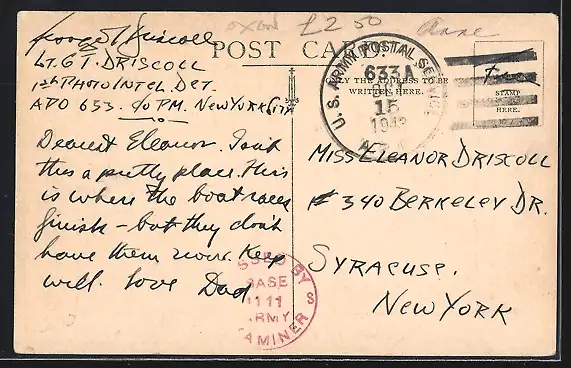 oxon £2.50 Anne
George T Driscoll
LT. G T. DRISCOLL
1st PHOTO INTEL DET.
APO 633. c/o PM. NEW YORK CITY
POST CARD
U. S. ARMY POSTAL SERVICE
633
15
ONLY THE ADDRESS TO BE
WRITTEN HERE.
Free
STAMP
HERE.
Dearest Eleanor. Isn't
this a pretty place. This
is where the boat races
finish - but they don't
have them now. Keep
well. Love Dad
PASSED BY
BASE
1111
ARMY
EXAMINER
S
MISS ELEANOR DRISCOLL
# 340 BERKELEY DR.
SYRACUSE.
NEW YORK